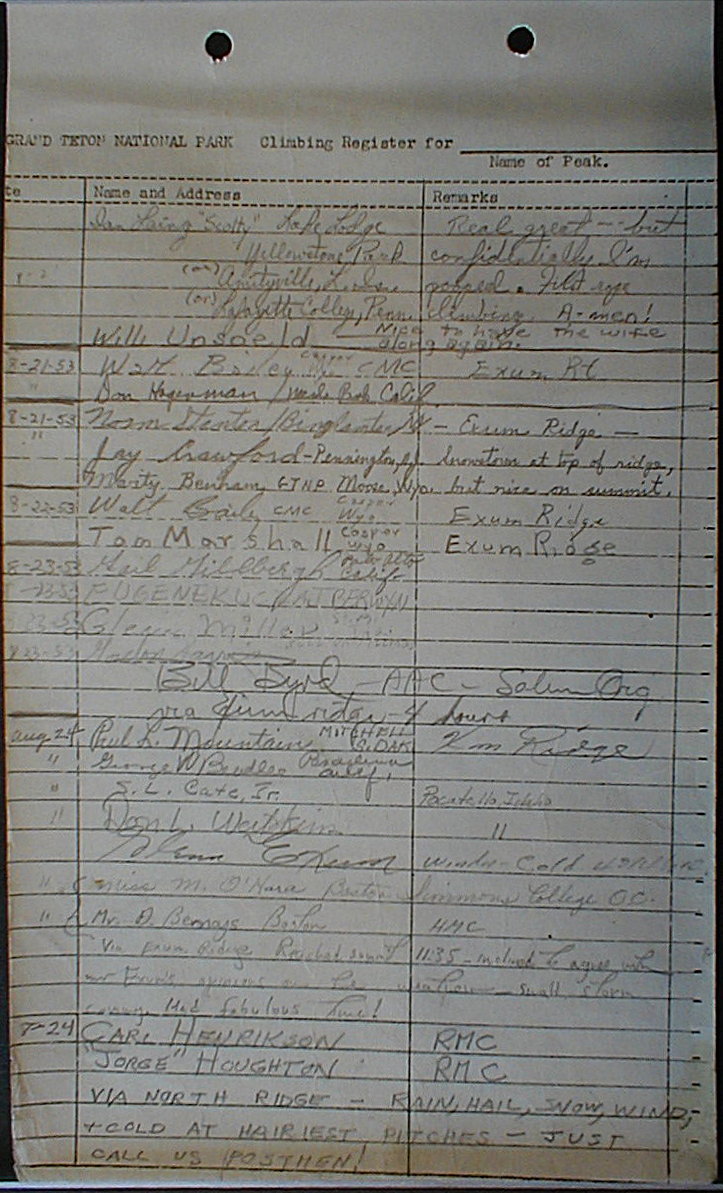 GRAND TETON NATIONAL PARK Climbing Register for
Name of Peak.
te Name and Address Remarks
Dan Laing "Scotty" Lake Lodge Real great — but
Yellowstone Park confidentially I'm
(or) Amityville, pooped. First rope
(or) Lafayette College, Penn. climbing. A-men!
Willi Unsoeld — Nice to have the wife
along again.
8-21-53 Walt Bailey Casper Wyo CMC Exum Rt
" Don Hagerman / Calif
8-21-53 Norm / - Exum Ridge -
" Jay Crawford - Pennington, N.J. Snowstorm at top of ridge,
Marty Benham, GTNP Moose, Wyo. but nice on summit.
8-22-53 Walt Baily CMC Casper Wyo Exum Ridge
Tom Marshall Casper Wyo Exum Ridge
8-23-53 Palo Alto Calif
8-23-53 EUGENE BERWYN
8-23-53 Glenn Miller
8-23-53
Bill Byrd - AAC - Salem Oreg
via Exum ridge 4 hours
Aug 24 Paul L. MITCHELL S. DAK Ridge
" George W Pasadena Calif.
" S. L. Cate, Jr. Pocatello, Idaho
" Don L. "
Glenn Exum Windy - Cold
" Miss M. O'Hara Boston Simmons College O.C.
" Mr. D. Bernays Boston HMC
Via Exum Ridge Reached summit 11:35 - inclined to agree with
Mr Exum's opinions on the weather - small storm
coming. Had fabulous time!
24 CARL HENRIKSON RMC
"JORGE" HOUGHTON RMC
VIA NORTH RIDGE - RAIN, HAIL, SNOW, WIND,
+ COLD AT HAIRIEST PITCHES - JUST
CALL US POSTMEN!